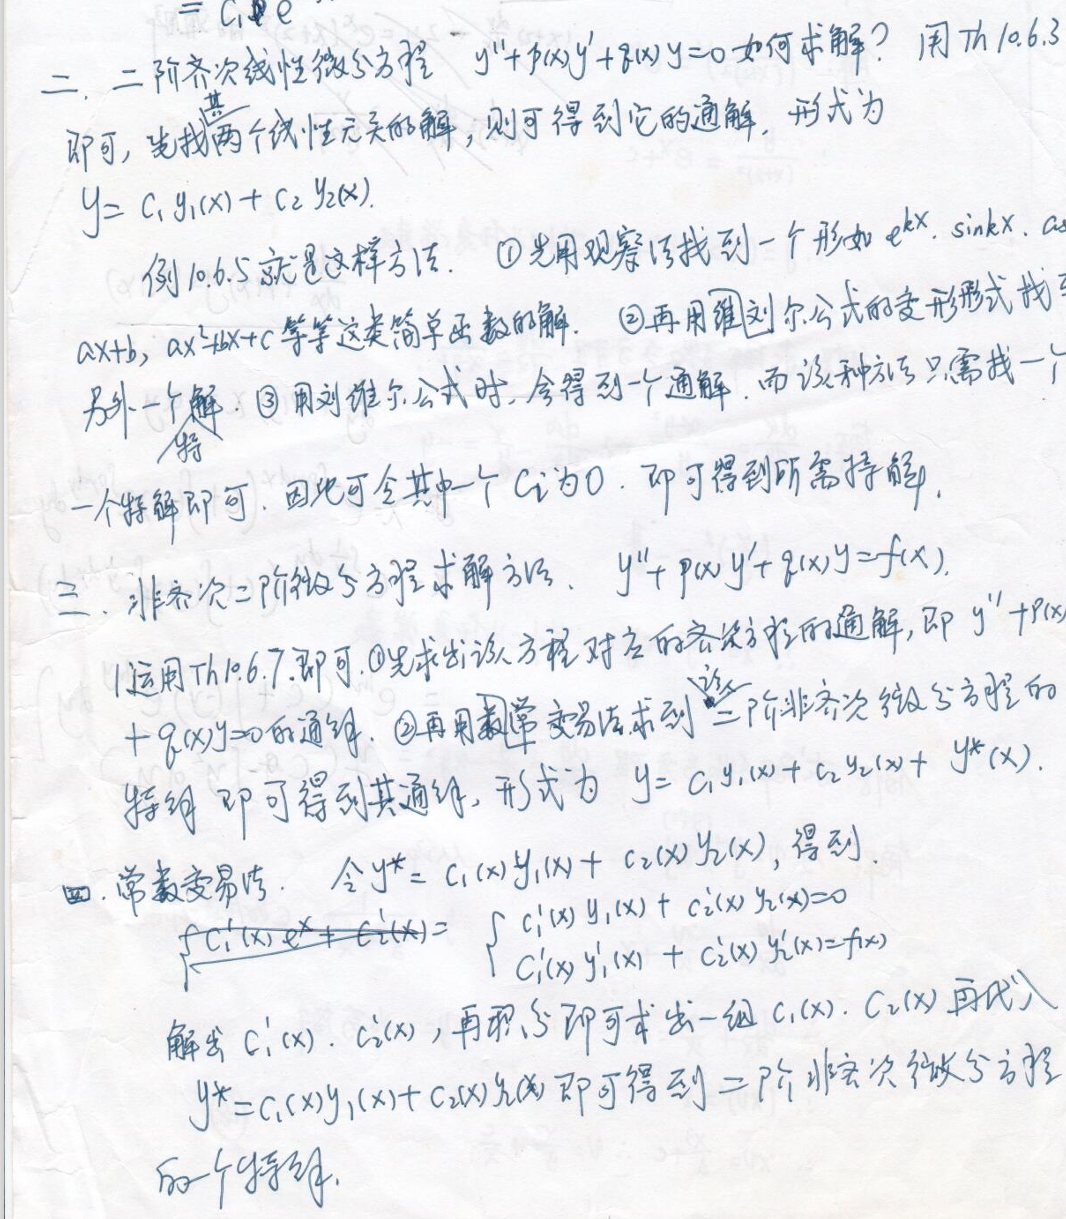 = C₁ e
二. 二阶齐次线性微分方程 y''+p(x)y'+q(x)y=0 如何求解? 用Th10.6.3
即可, 先找其两个线性无关的解, 则可得到它的通解, 形式为
y= C₁y₁(x)+C₂y₂(x).
例10.6.5就是这样方法. ①先用观察法找到一个形如 e^{kx}. sinkx. cos
ax+b, ax²+bx+c 等等这类简单函数的解. ②再用维刘尔公式的变形形式找到
另外一个特解. ③用刘维尔公式时, 会得到一个通解. 而该种方法只需找一个
一个特解即可. 因此可令其中一个Cᵢ为0. 即可得到所需特解.
三. 非齐次二阶微分方程求解方法. y''+p(x)y'+q(x)y=f(x).
1运用Th10.6.7.即可.①先求出该方程对应的齐次方程的通解, 即 y''+p(x)
+q(x)y=0的通解. ②再用数常变易法求到该二阶非齐次微分方程的
特解 即可得到其通解, 形式为 y= C₁y₁(x)+C₂y₂(x)+y*(x).
四. 常数变易法. 令y*= C₁(x)y₁(x)+C₂(x)y₂(x), 得到.
{C₁'(x)eˣ+C₂'(x)= { C₁'(x)y₁(x)+C₂'(x)y₂(x)=0
C₁'(x)y₁'(x)+C₂'(x)y₂'(x)=f(x)
解出C₁'(x). C₂'(x), 再积分即可求出一组C₁(x). C₂(x)再代入
y*=C₁(x)y₁(x)+C₂(x)y₂(x)即可得到二阶非齐次微分方程
的一个特解.